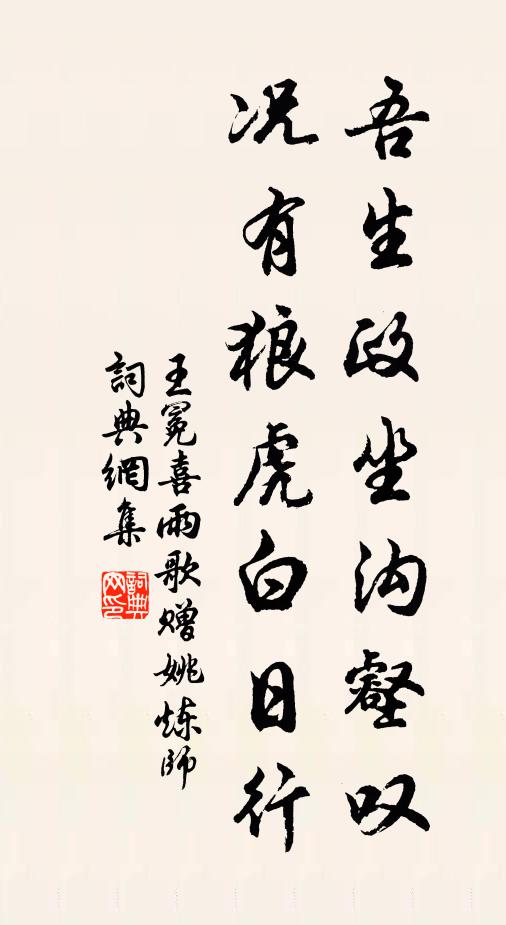 吾生政坐沟壑叹
况有狼虎白日行
王冕喜雨歌赠姚炼师
詞典網集
詞典网印